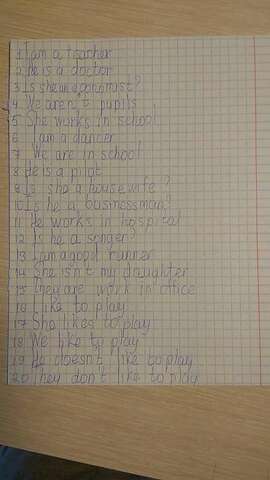 1 I am a teacher
2 He is a doctor
3 Is she an economist?
4 We aren't pupils
5 She works in school
6 I am a dancer
7 We are in school
8 He is a pilot
9 Is she a housewife?
10 Is he a businessman?
11 He works in hospital
12 Is he a singer?
13 I am a good runner
14 She isn't my daughter
15 They are work in office
16 I like to play
17 She likes to play
18 We like to play
19 He doesn't like to play
20 They don't like to play